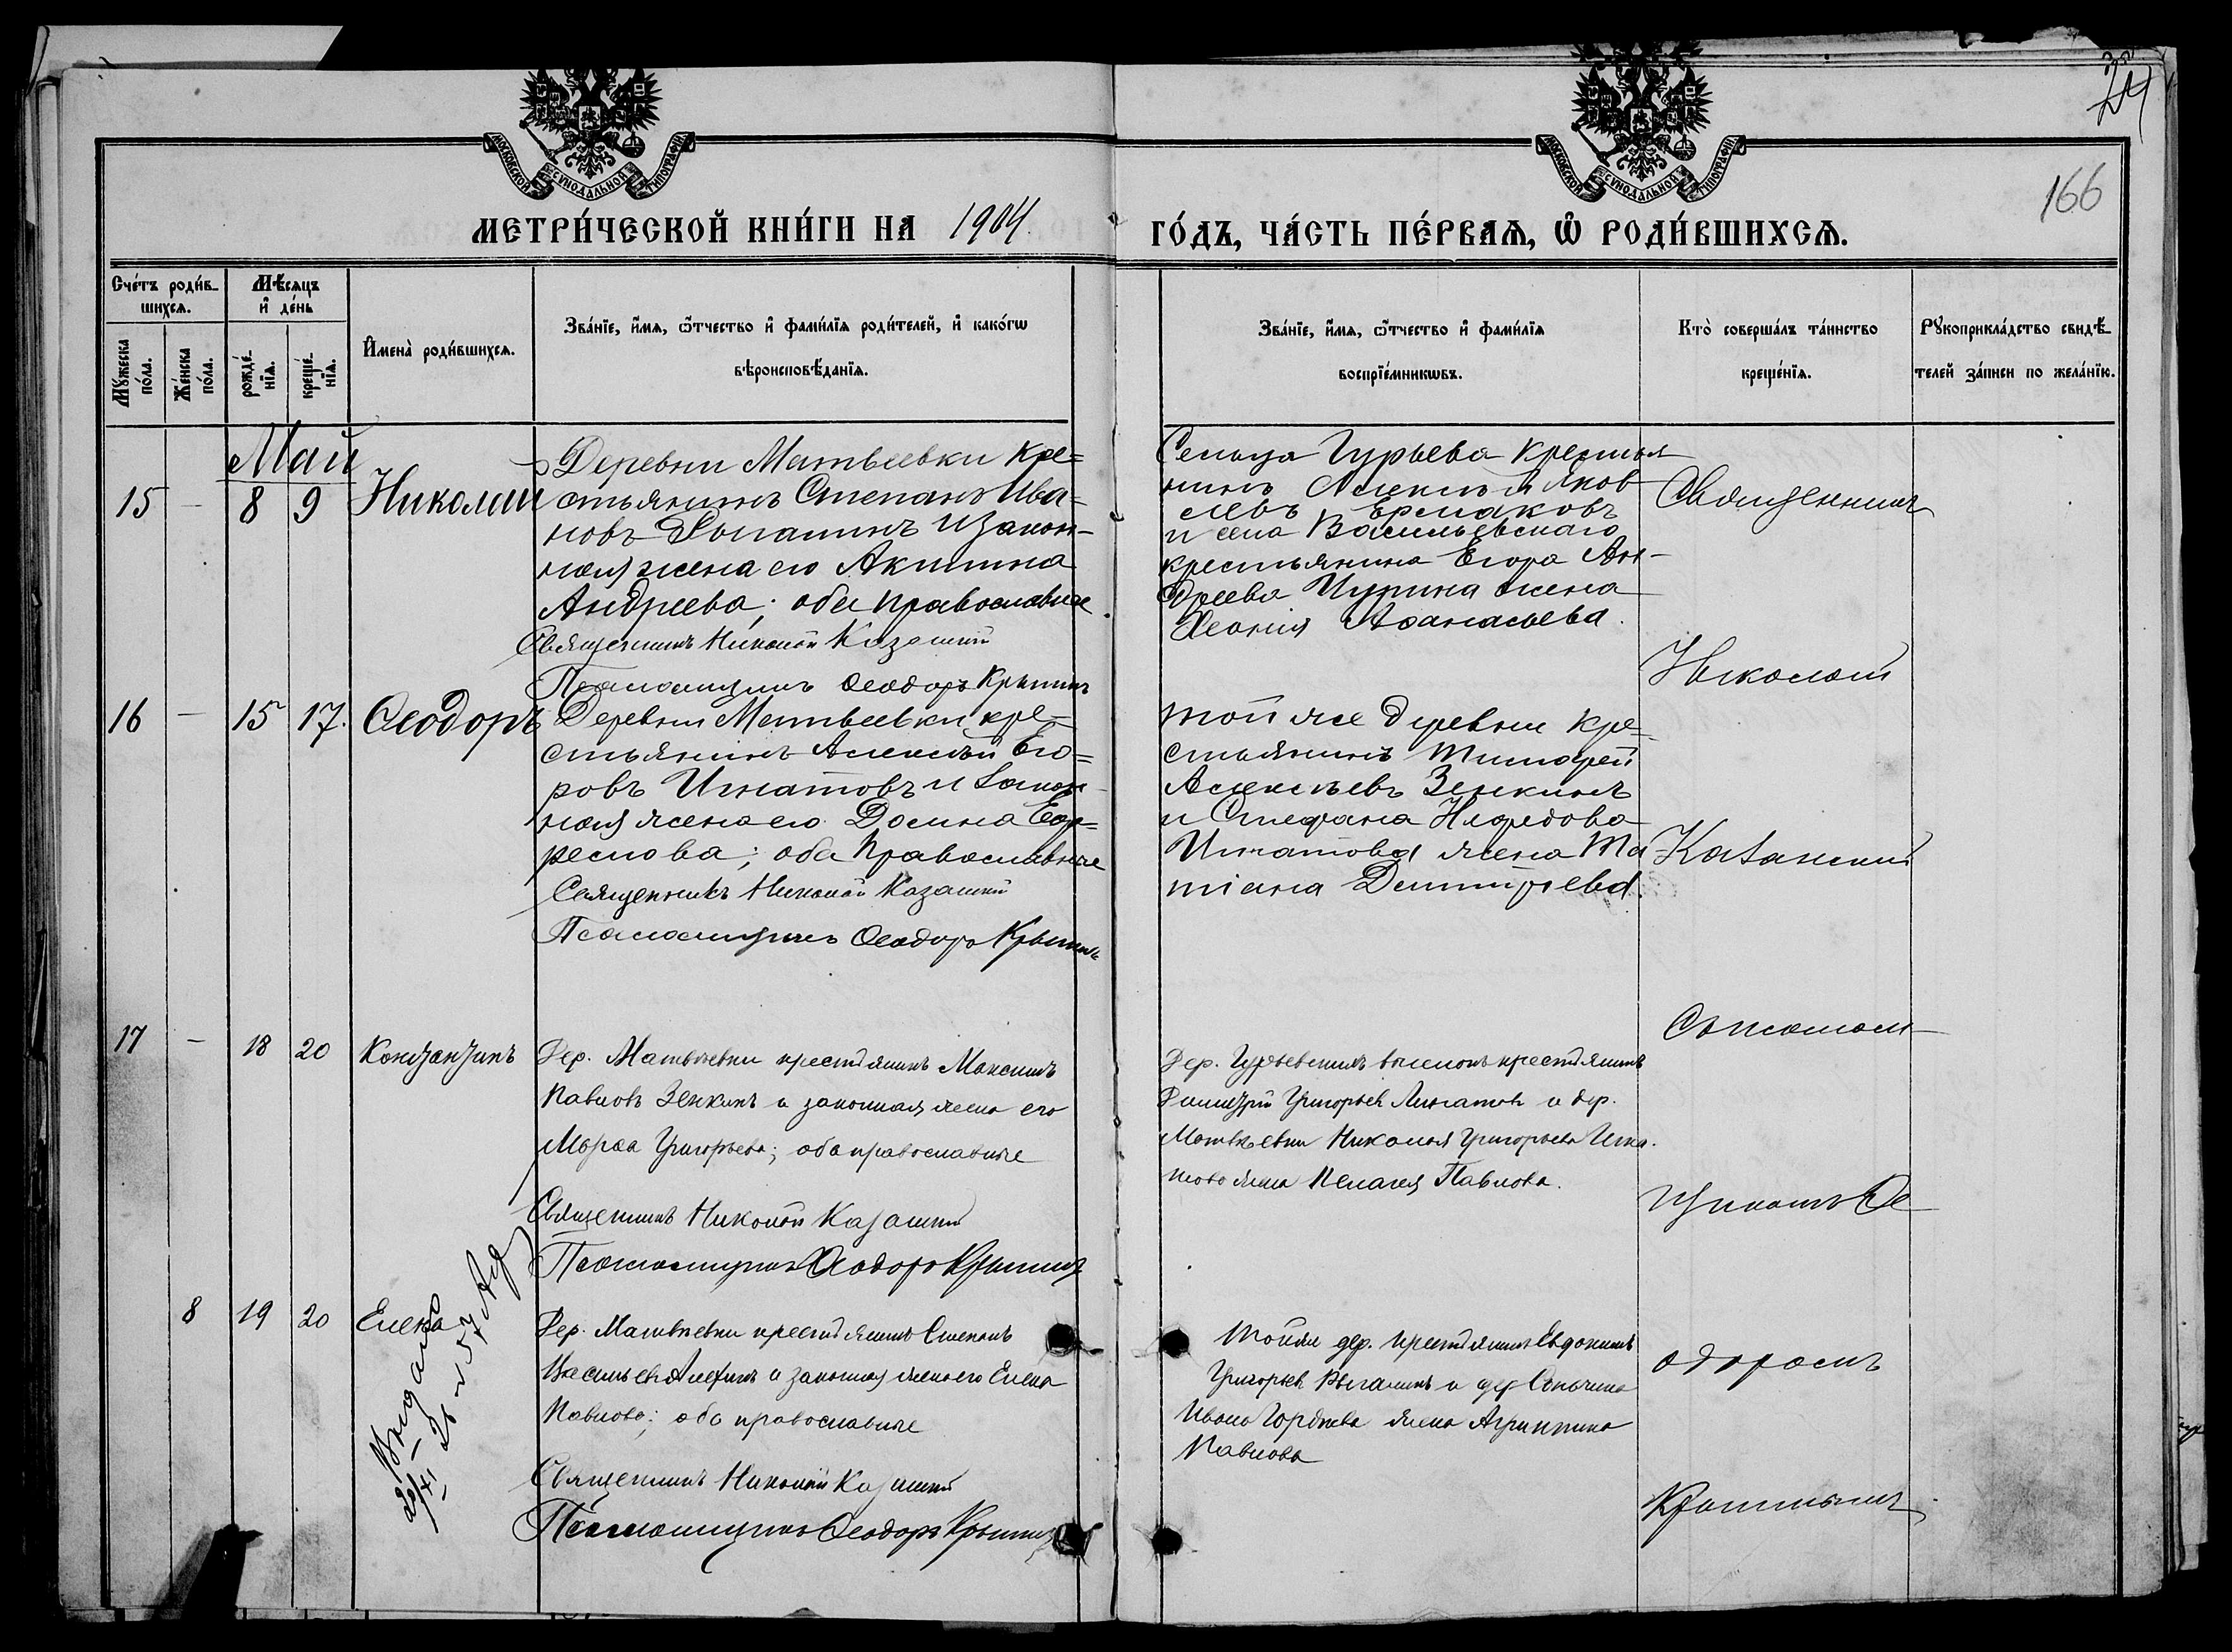 МОСКОВСКОЙ СѴНОДАЛЬНОЙ ТИПОГРАФІИ
МОСКОВСКОЙ СѴНОДАЛЬНОЙ ТИПОГРАФІИ
166
МЕТРИ́ЧЕСКОЙ КНИ́ГИ НА 1904. ГО́ДЪ, ЧА́СТЬ ПЕ́РВАѦ, Ѡ҆ РОДИ́ВШИХСѦ.
Сче́тъ роди́в-
шихсѧ.
Мꙋ́жеска
по́ла.
Же́нска
по́ла.
Мѣ́сяцъ
и҆ де́нь
рожде́-
нїѧ.
креще́-
нїѧ.
И҆мена̀ роди́вшихсѧ.
Зва́нїе, и҆́мѧ, ѻ҆́тчество и҆ фами́лїѧ роди́телей, и҆ како́гѡ
вѣроисповѣ́данїѧ.
Зва́нїе, и҆́мѧ, ѻ҆́тчество и҆ фами́лїѧ
воспрїе́мникѡвъ.
Кто̀ соверша́лъ та́инство
креще́нїѧ.
Рꙋкоприкла́дство свидѣ́-
телей за́писи по жела́нїю.
Май
15 - 8 9 Николай
Деревни Матвѣевки кре=
стьянинъ Степанъ Ива-
новъ Рыгалинъ и закон-
ная жена его Акилина
Андреева; оба православные.
Священникъ Николай Казанскій
Псаломщикъ Ѳеодоръ Крылинъ
Сельца Гурьева крестья
нинъ Алексѣй Яков
левъ Ермаковъ
и села Васильевскаго
крестьянина Егора Ан-
дреева жена
Ѳеонія Аѳанасьева.
16 - 15 17. Ѳеодоръ
Деревни Матвѣевки кре=
стьянинъ Алексѣй Его=
ровъ Игнатовъ и закон
ная жена его Домна
оба православные
Священникъ Николай Казанскій
Псаломщикъ Ѳеодоръ Крылинъ
той же деревни кре=
стьянинъ Тимофей
Алексѣевъ Зенкинъ
и Стефана Нефедова
Игнатова жена Та
тіана Димитріева.
17 - 18 20 Константинъ
Дер. Матвѣевки крестьянинъ Максимъ
Павловъ Зенкинъ и законная жена его
Марѳа Григорьева; оба православные
Священникъ Николай Казанскій
Псаломщикъ Ѳеодоръ Крылинъ
Дер. Гурьевскихъ выселокъ крестьянинъ
Димитрій Григорьевъ и дер.
Матвѣевки Николая Григорьева Игна-
това жена Пелагея Павлова.
8 19 20 Елена
Дер. Матвѣевки крестьянинъ Степанъ
Васильевъ Алехинъ и законная жена его Елена
Павлова; оба православные
Священникъ Николай Казанскій
Псаломщикъ Ѳеодоръ Крылинъ
Той же дер. крестьянинъ Евдокимъ
Григорьевъ Рыгалинъ и дер.
Ивана Гордѣева жена Агриппина
Павлова
Священникъ
Николай
Казанскій
Съ псалом-
щикомъ Ѳе
одоромъ
Крылинымъ
Выдано